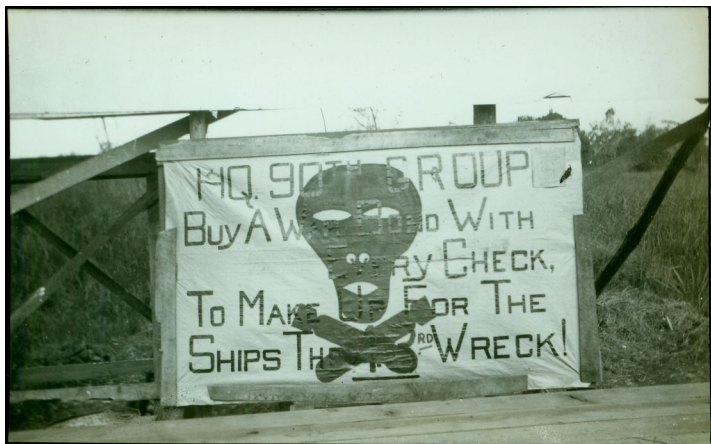 HQ. 90TH GROUP
BUY A WAR BOND WITH
EVERY CHECK,
TO MAKE UP FOR THE
SHIPS THE WRECK!